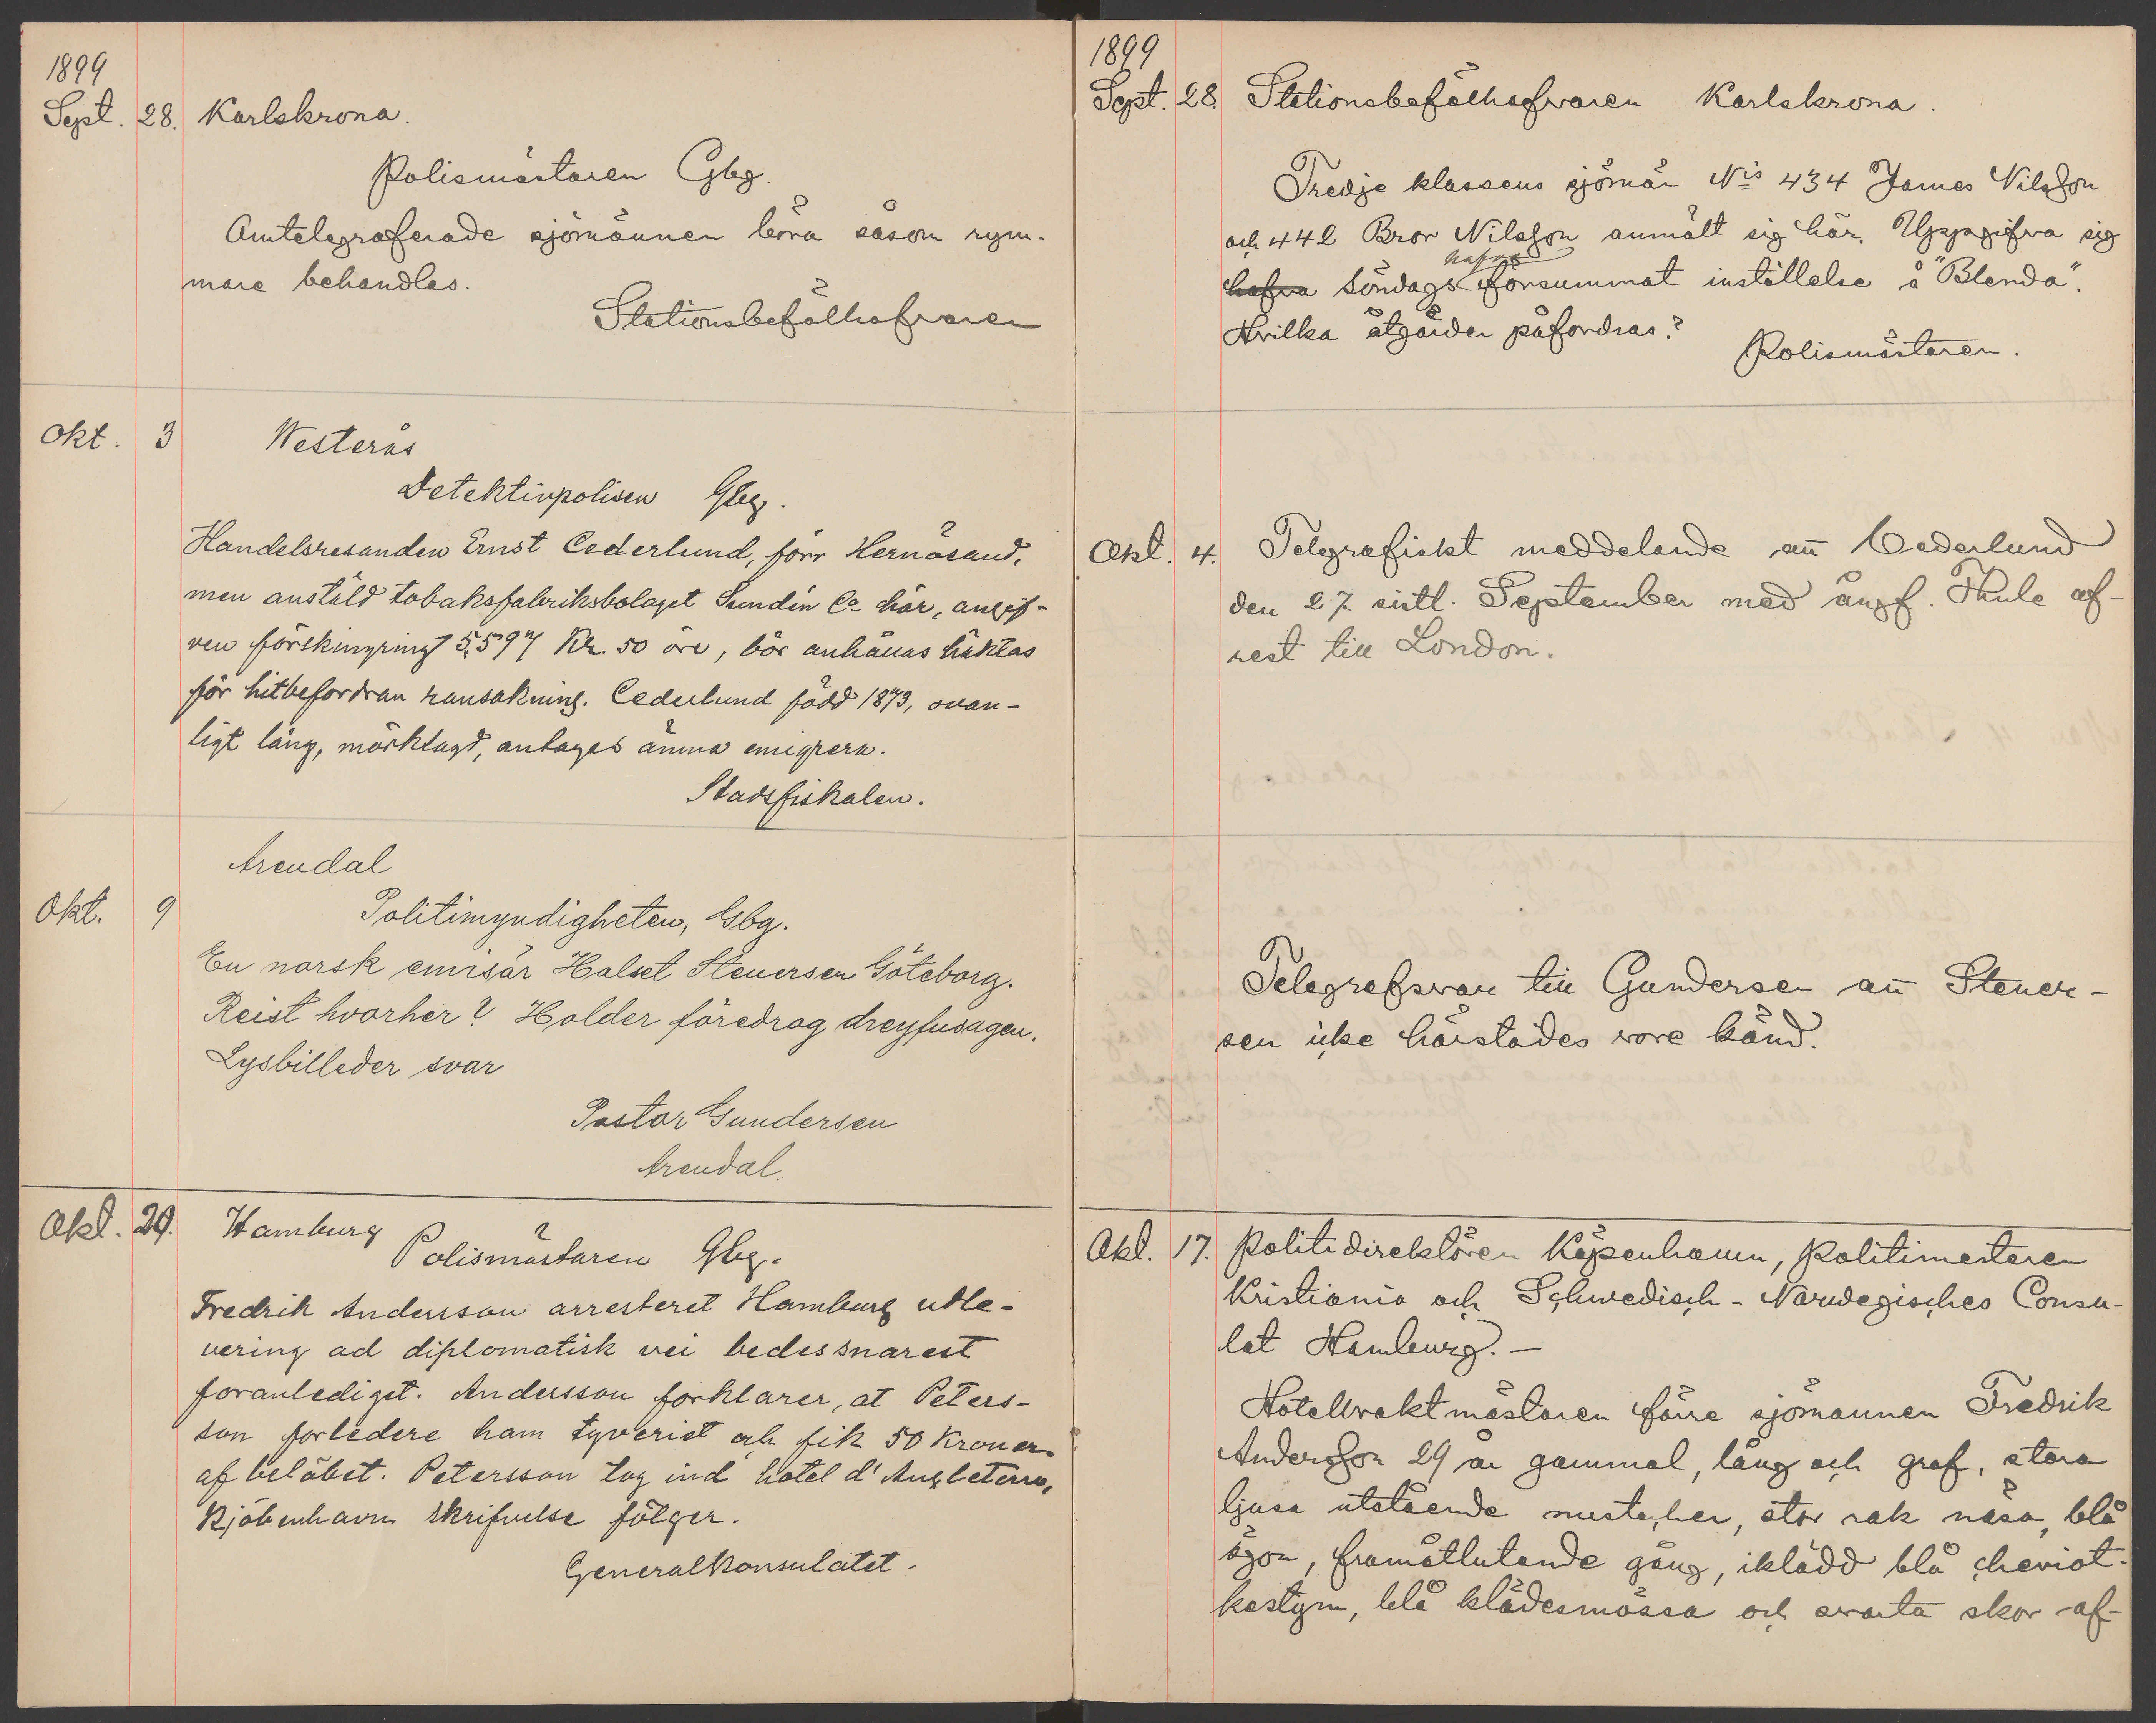 1899
Sept. 28. Karlskrona.
Polismästaren Gbg.
Omtelegraferade sjömännen böra såsom rym-
mare behandlas.
Stationsbefälhafvaren
Okt. 3 Westerås
Detektivpolisen Gbg.
Handelsresanden Ernst Cederlund, förr Hernösand,
men anstäld tobaksfabriksbolaget Sundin Co här, angif-
ven förskingring 5,597 Kr. 50 öre, bör anhållas häktas
för hitbefordran ransakning. Cederlund född 1873, ovan-
ligt lång, mörklagd, antages ämna emigrera.
Stadsfiskalen.
Arendal
Okt. 9 Politimyndigheten, Gbg.
En norsk emisär Halset Steuersen Göteborg.
Reist hvorher? Holder föredrag dreyfusagen.
Lysbilleder svar
Pastor Gundersen
Arendal.
Okt. 29. Hamburg
Polismästaren Gbg.
Fredrik Andersson arresteret Hamburg udle-
vering ad diplomatisk vei bedes snarest
foranlediget. Andersson forklarer, at Peters-
son forledere ham tyveriet och fik 50 Kroner
af belöbet. Petersson tog ind hotel d'Angleterre,
Kjöbenhavn skrifvelse fölger.
Generalkonsulatet.
1899
Sept. 28. Stationsbefälhafvaren Karlskrona.
Tredje klassens sjömän Nis 434 James Nilsson
och 442 Bror Nilsson anmält sig här. Uppgifva sig
hafva
hafva Söndags försummat inställelse å "Blenda".
Hvilka åtgärder påfordras?
Polismästaren.
Okt. 4. Telegrafiskt meddelande att Cederlund
den 27. sistl. September med ångf. Thule af-
rest till London.
Telegrafsvar till Gundersen att Steuer-
sen icke härstädes vore känd.
Okt. 17. Politidirektören Köpenhamn, Politimesteren
Kristiania och Schwedisch-Norwegisches Consu-
lat Hamburg. —
Hotellvaktmästaren förre sjömannen Fredrik
Andersson 29 år gammal, lång och graf, stora
ljusa utstående mustacher, stor rak näsa, blå
ögon, framåtlutande gång, iklädd blå cheviot-
kostym, blå klädesmössa och svarta skor af-